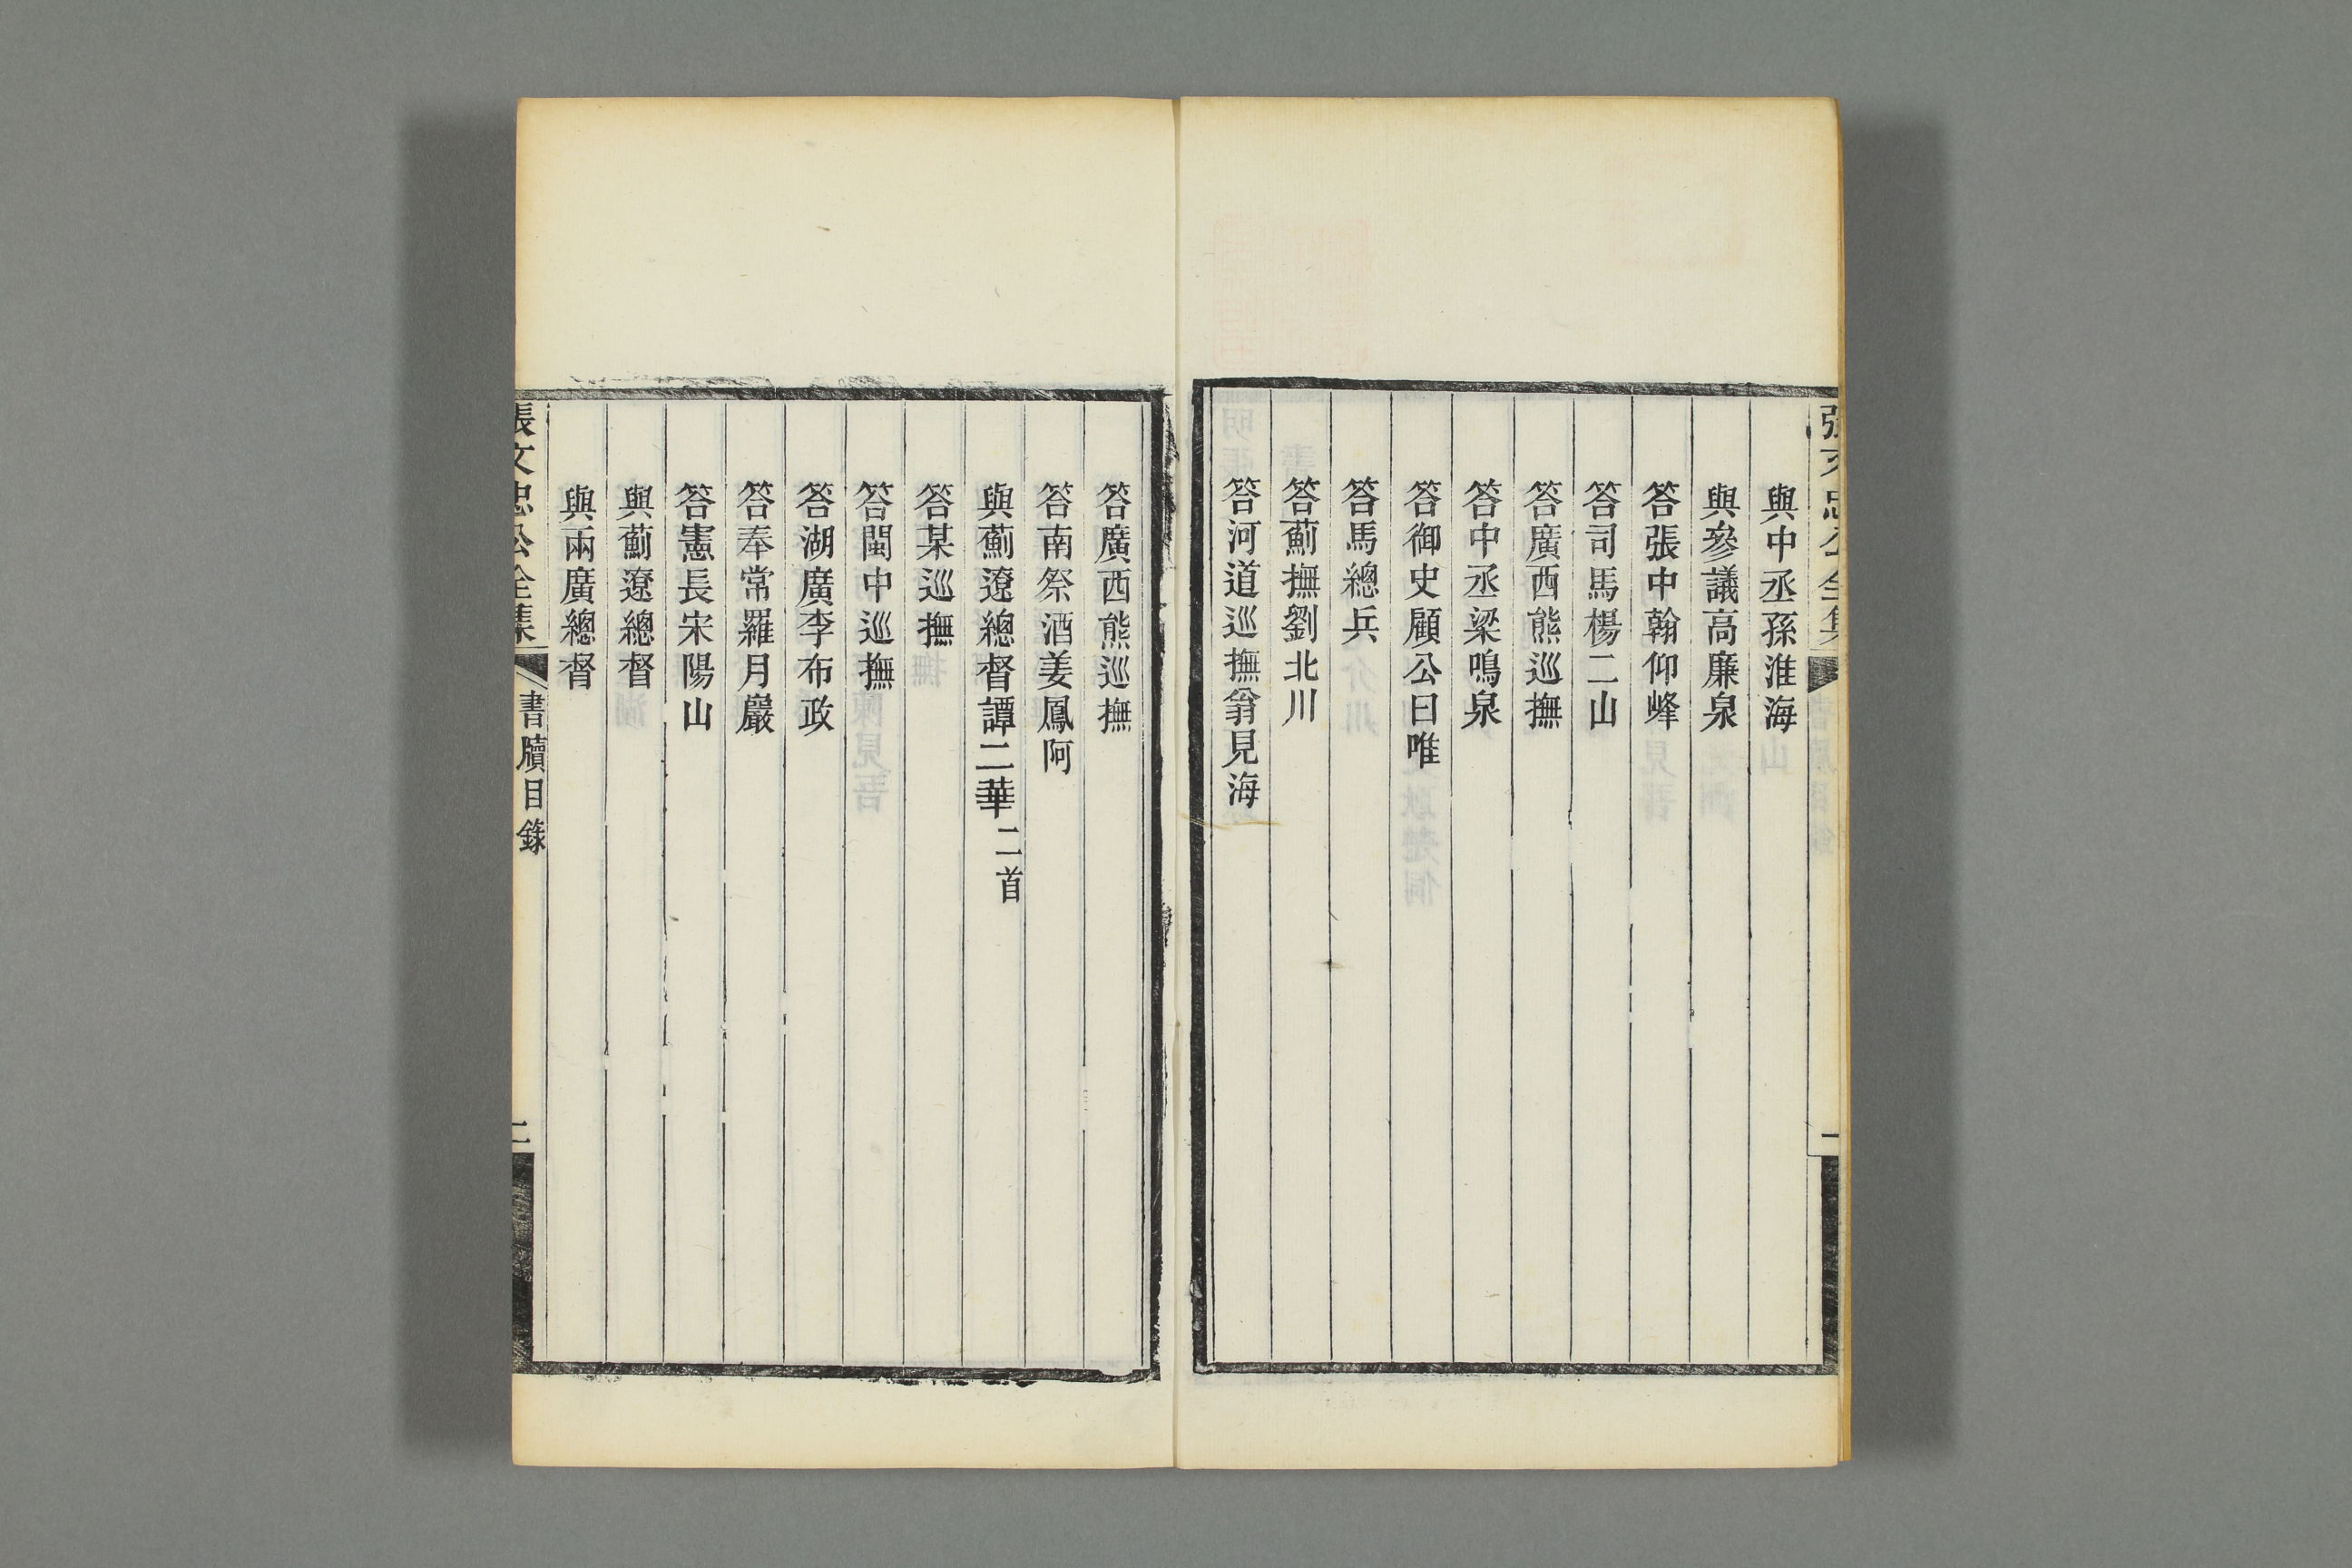 張文忠公全集
一
與中丞孫淮海
與參議高廉泉
答張中翰仰峰
答司馬楊二山
答廣西熊巡撫
答中丞梁鳴泉
答御史顧公曰唯
答馬總兵
答薊撫劉北川
答河道巡撫翁見海
答廣西熊巡撫
答南祭酒姜鳳阿
與薊遼總督譚二華二首
答某巡撫
答閩中巡撫
答湖廣李布政
答奉常羅月巖
答憲長宋陽山
與薊遼總督
與兩廣總督
張文忠公全集
書牘目錄
二